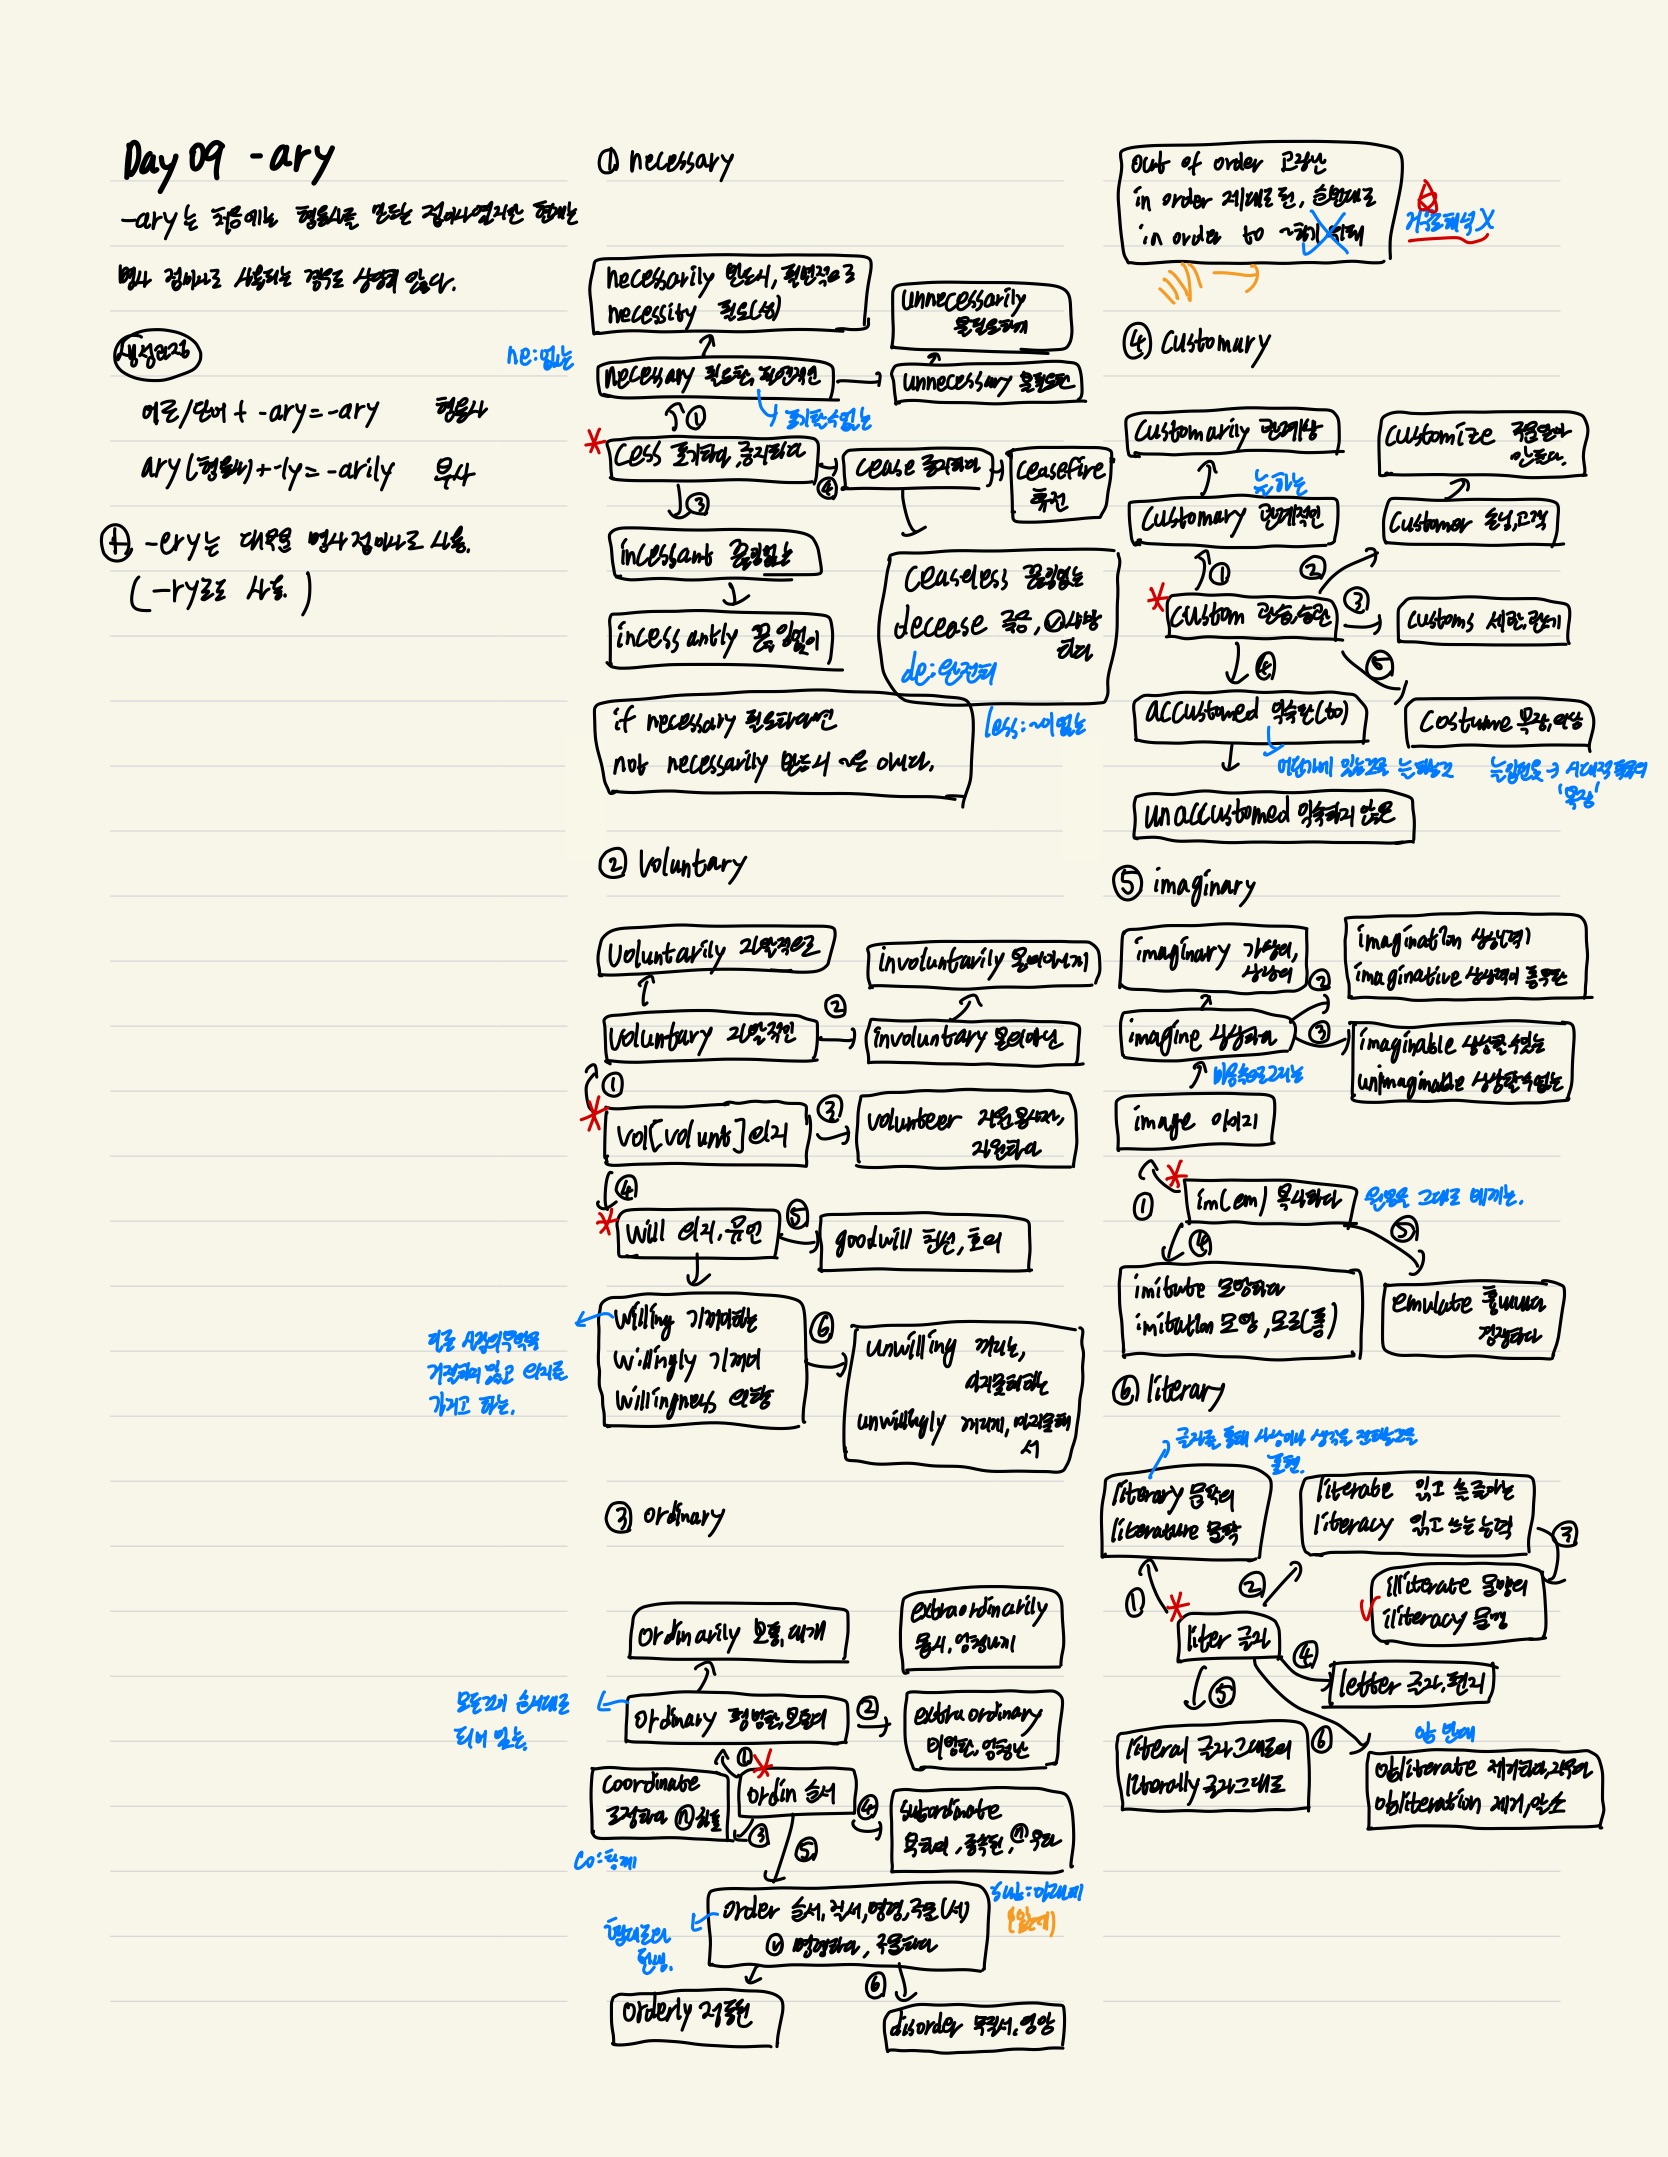 Day 09 -ary
-ary는 처음에는 형용사를 만드는 접미사였지만 현재는
명사 접미사로 사용되는 경우도 상당히 많다.
생성과정
어근/단어 + -ary = -ary 형용사
ary(형용사) + -ly = -arily 부사
+ -ery는 대부분 명사 접미사로 사용.
( -ry로도 사용. )
① necessary
necessarily 반드시, 필연적으로
necessity 필요(성)
unnecessarily
불필요하게
ne:없는
necessary 필요한, 필연적인
unnecessary 불필요한
포기할수없는
①
* cess 포기하다, 중지하다
④
cease 중지하다
ceasefire
휴전
③
incessant 끊임없는
incessantly 끊임없이
ceaseless 끊임없는
decease 죽음, ⓥ사망
하다
de:완전히
less: ~이 없는
if necessary 필요하다면
not necessarily 반드시 ~은 아니다.
② voluntary
voluntarily 자발적으로
involuntarily 본의아니게
voluntary 자발적인
②
involuntary 본의아닌
①
* vol[volunt] 의지
③
volunteer 자원봉사자,
자원하다
④
* will 의지, 유언
⑤
goodwill 친선, 호의
willing 기꺼이하는
willingly 기꺼이
willingness 의향
⑥
unwilling 꺼리는,
마지못해하는
unwillingly 꺼리게, 마지못해
서
가지고 하는.
③ ordinary
ordinarily 보통, 대개
extraordinarily
몹시, 엄청나게
모든것이 순서대로
되어 있는.
ordinary 평범한, 보통의
②
extraordinary
비범한, 엄청난
①
*
coordinate
조정하다 ⓝ좌표
ordin 순서
③
④
subordinate
부차적인, 종속된, ⓝ부하
co:함께
⑤
sub:아래에
order 순서, 질서, 명령, 주문(서)
ⓥ 명령하다, 주문하다
⑥
orderly 정돈된
disorder 무질서, 엉망
out of order 고장난
in order 제대로된, 순번대로
in order to ~하기 위해
거꾸로해석 X
④ customary
customarily 관례상
customize 주문받아
만들다.
늘하는
customary 관례적인
customer 손님, 고객
①
②
* custom 관습, 습관
③
customs 세관, 관세
④
⑤
accustomed 익숙한(to)
costume 복장, 의상
unaccustomed 익숙하지 않은
⑤ imaginary
imaginary 가상의,
상상의
imagination 상상(력)
imaginative 상상력이 풍부한
②
imagine 상상하다
③
imaginable 상상할수있는
unimaginable 상상할수없는
마음속으로그리는
image 이미지
①
* im(em) 복사하다
원본을 그대로 베끼는.
④
⑤
imitate 모방하다
imitation 모방, 모조(품)
emulate 흉내내다
경쟁하다
⑥ literary
글자를 통해 사상이나 생각을 전하는것을
표현.
literary 문학의
literature 문학
literate 읽고 쓸줄아는
literacy 읽고 쓰는 능력
③
illiterate 문맹의
iliteracy 문맹
①
②
* liter 글자
④
letter 글자, 편지
⑤
⑥
literal 글자그대로의
literally 글자그대로
obliterate 제거하다, 지우다
obliteration 제거, 말소